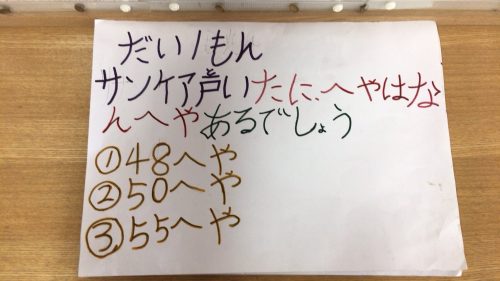 だい1もん
サンケア声いたに、へやはな
んへやあるでしょう
①48へや
②50へや
③55へや